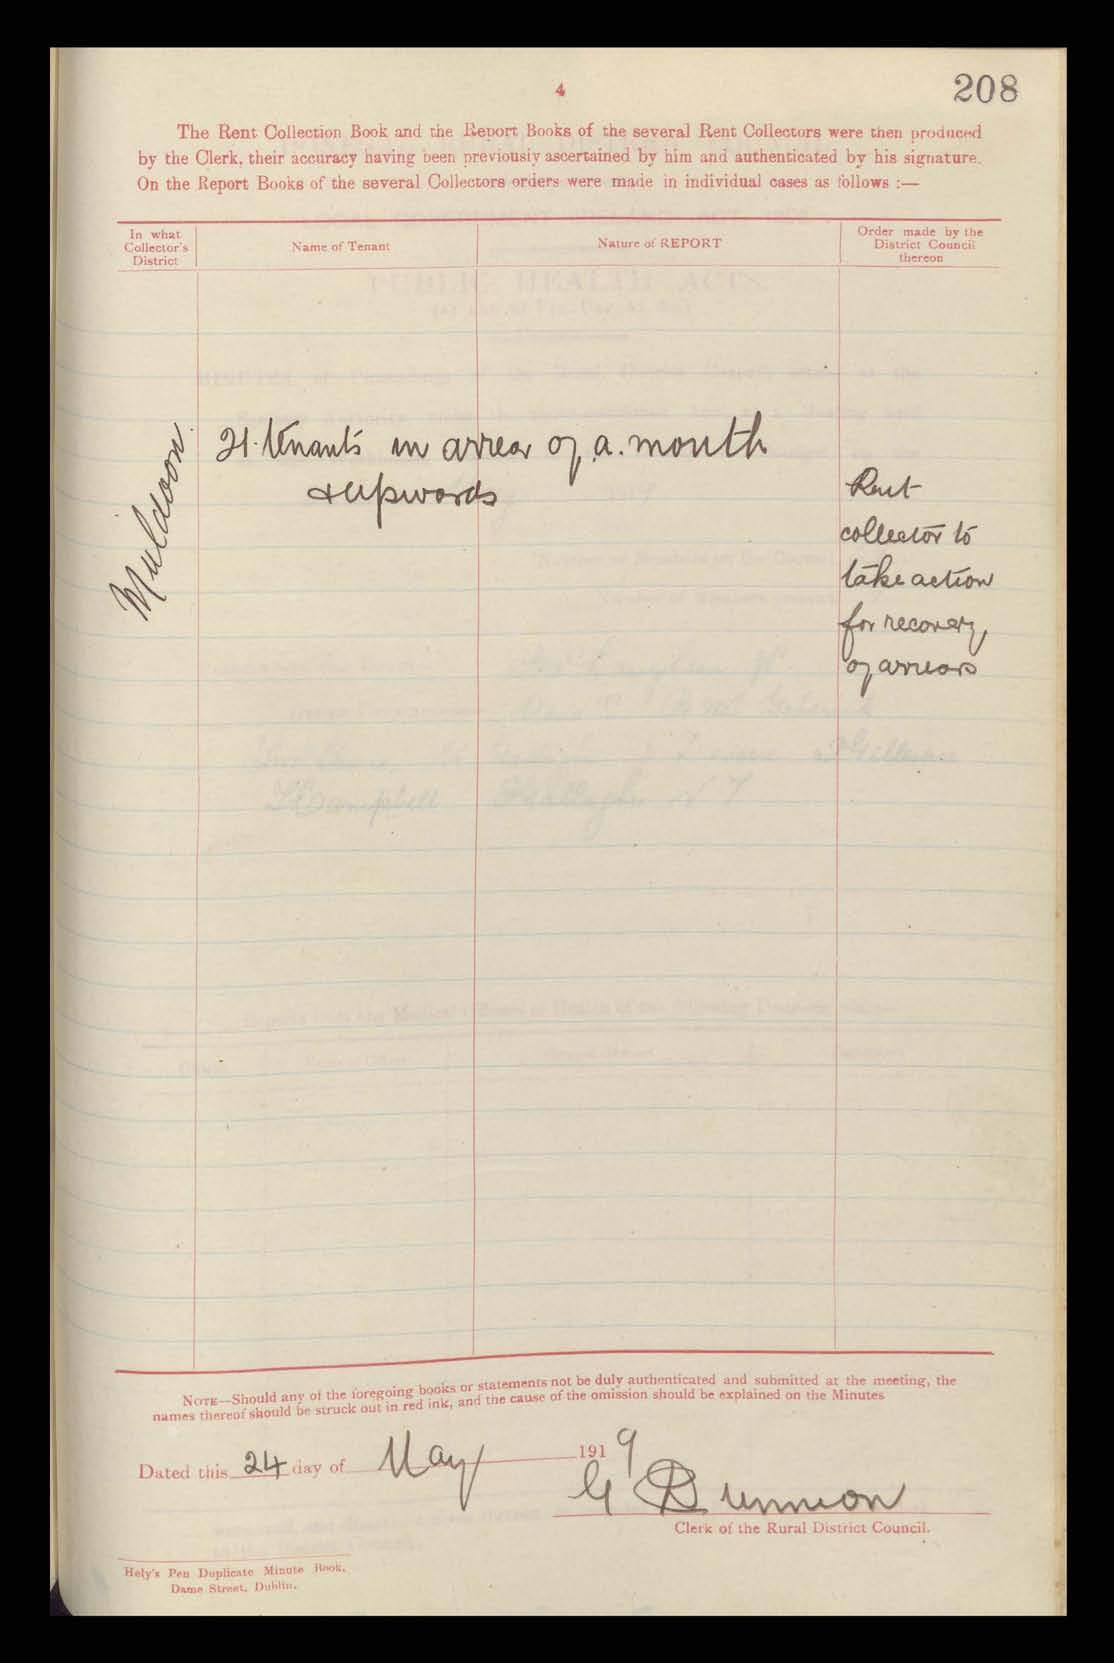 208
4
The Rent Collection Book and the Report Books of the several Rent Collectors were then produced
by the Clerk, their accuracy having been previously ascertained by him and authenticated by his signature.
On the Report Books of the several Collectors orders were made in individual cases as follows :—
In what Collector's District
Name of Tenant
Nature of REPORT
Order made by the District Council thereon
Muldoon.
21 tenants in arrear of a month
& upwards
Rent
collector to
take action
for recovery
of arrears
NOTE—Should any of the foregoing books or statements not be duly authenticated and submitted at the meeting, the
names thereof should be struck out in red ink, and the cause of the omission should be explained on the Minutes
Dated this 24 day of May 1919
Clerk of the Rural District Council.
Hely's Pen Duplicate Minute Book,
Dame Street, Dublin.